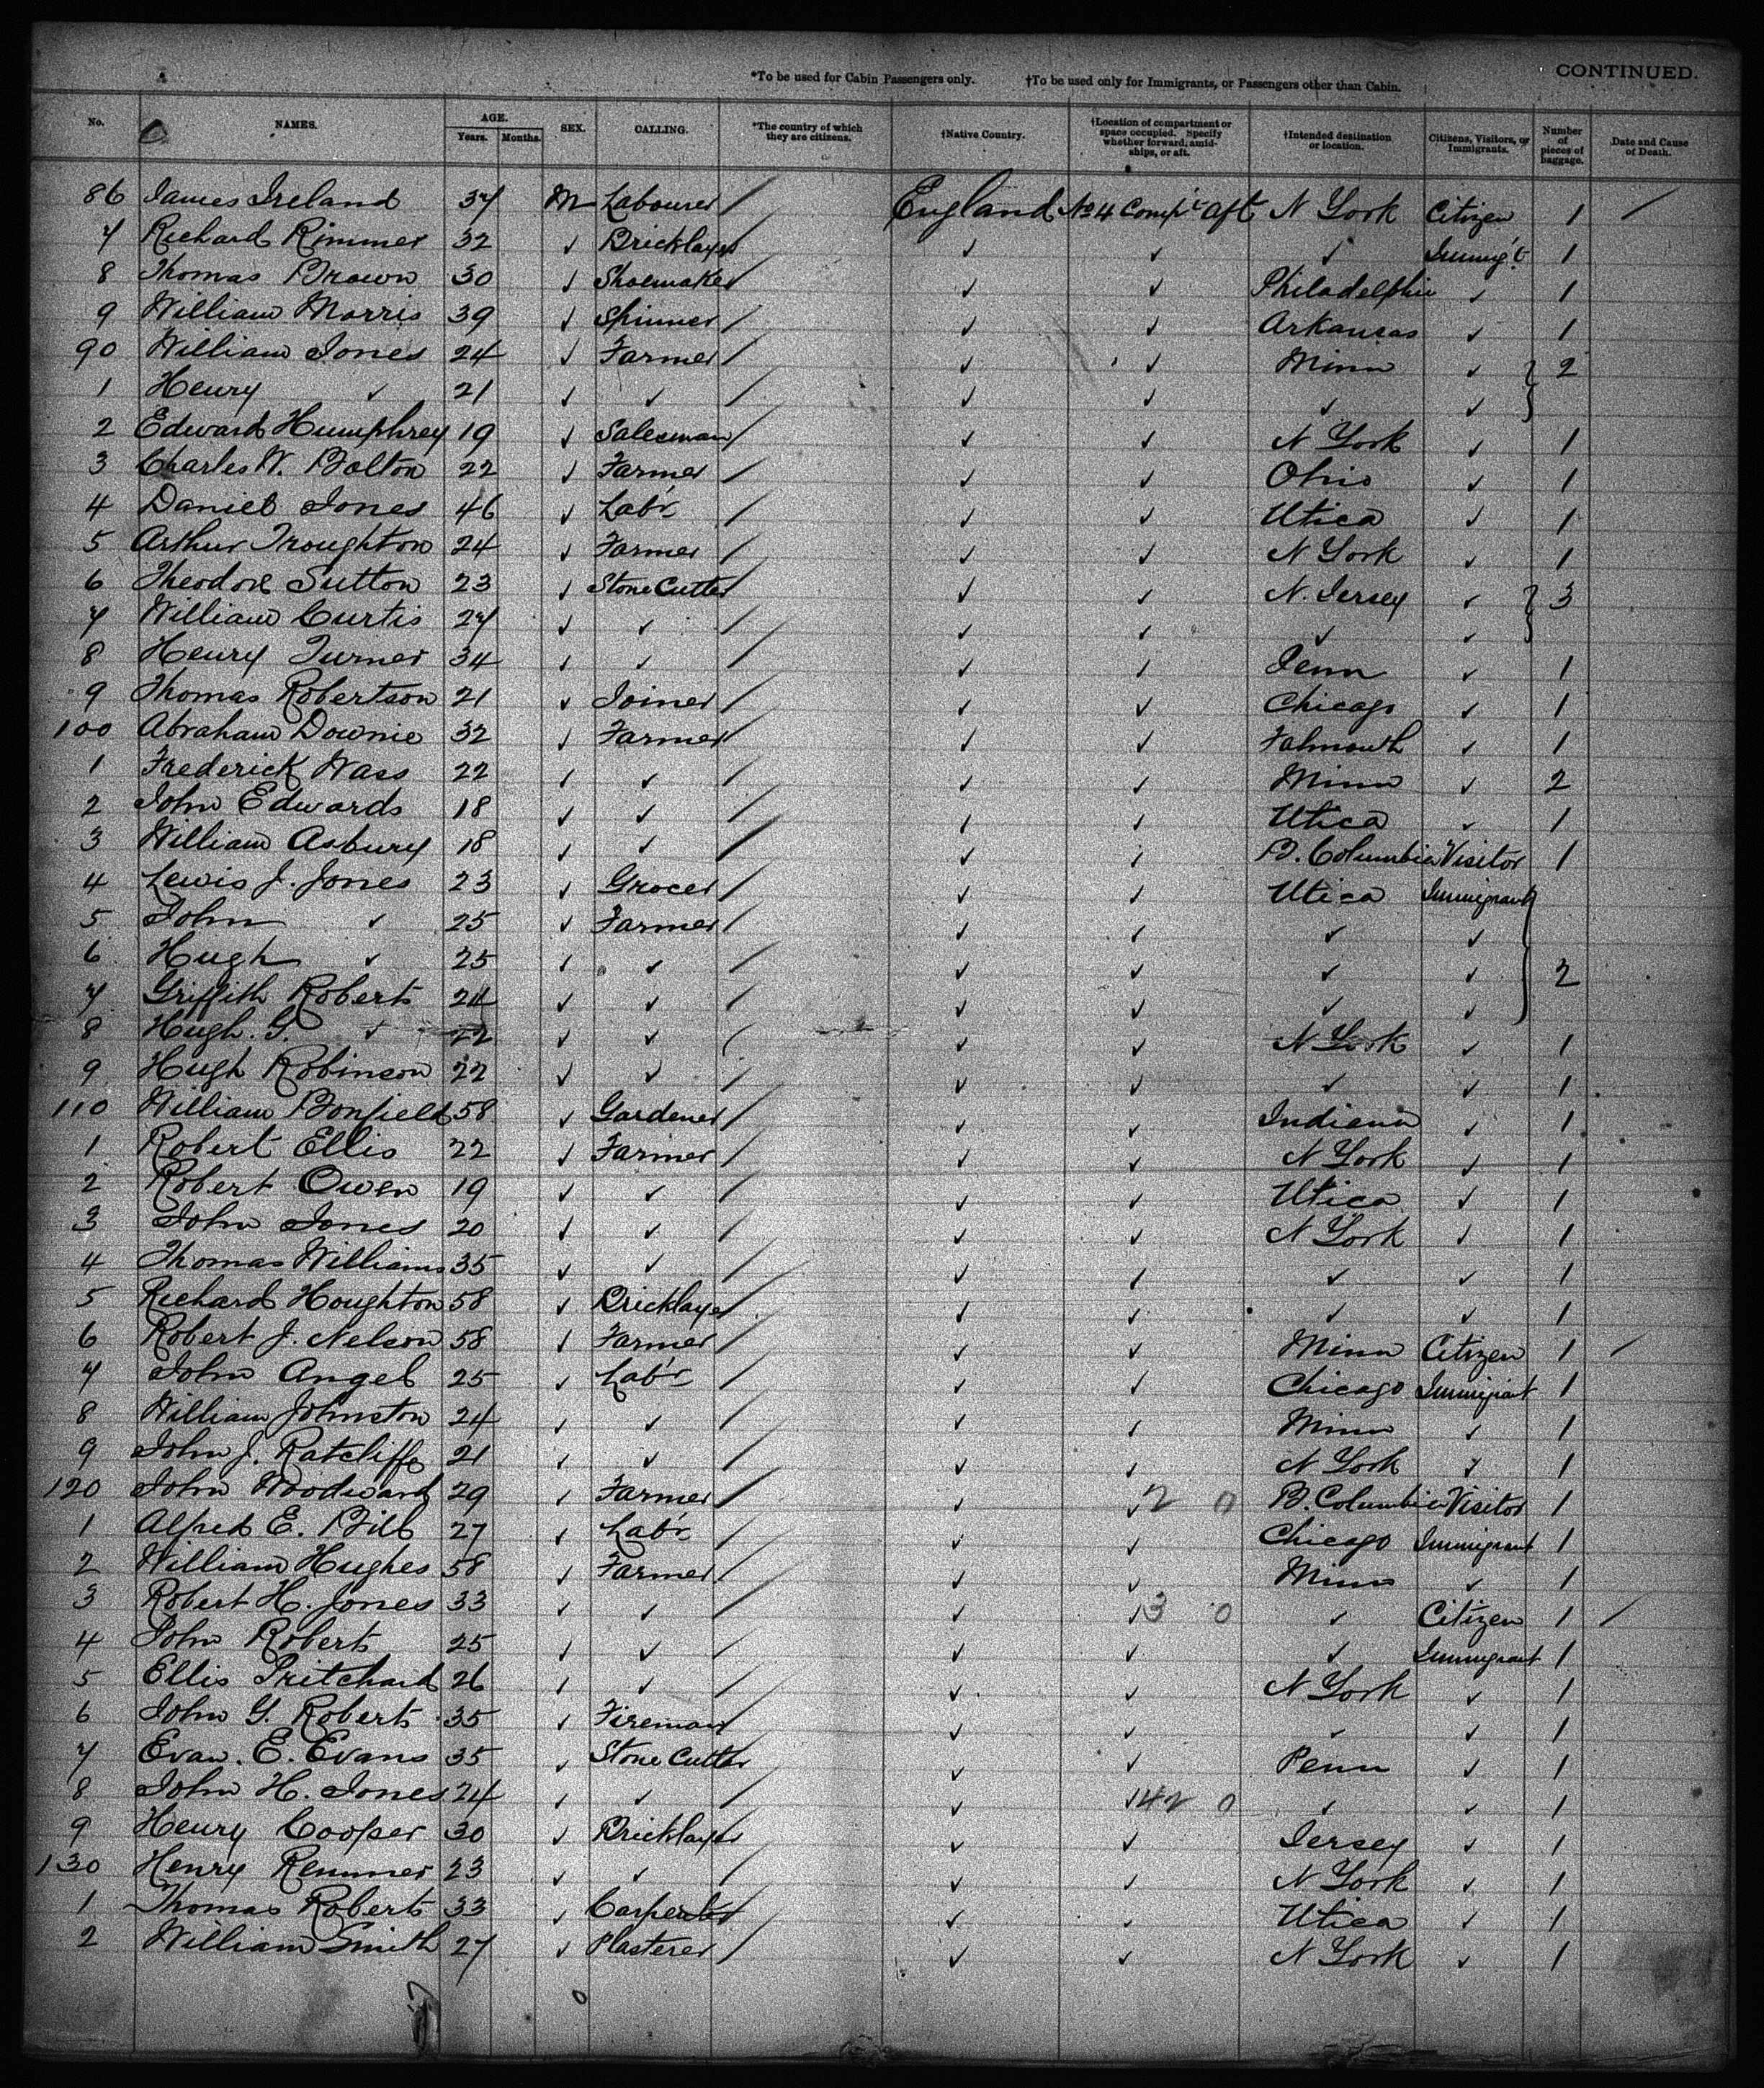 *To be used for Cabin Passengers only. †To be used only for Immigrants, or Passengers other than Cabin. CONTINUED.
No. NAMES. AGE. Years. Months. SEX. CALLING. *The country of which they are citizens. †Native Country. †Location of compartment or space occupied. Specify whether forward, amidships, or aft. †Intended destination or location. Citizens, Visitors, or Immigrants. Number of pieces of baggage. Date and Cause of Death.
86 James Ireland 37 M Labourer / England No 4 Comp't Aft N York Citizen 1 /
7 Richard Rimmer 32 ✓ Bricklayer / ✓ ✓ ✓ Immig't 1
8 Thomas Brown 30 ✓ Shoemaker / ✓ ✓ Philadelphia ✓ 1
9 William Morris 39 ✓ Spinner / ✓ ✓ Arkansas ✓ 1
90 William Jones 24 ✓ Farmer / ✓ ✓ Minn ✓ } 2
1 Henry ✓ 21 ✓ ✓ / ✓ ✓ ✓ ✓
2 Edward Humphrey 19 ✓ Salesman / ✓ ✓ N York ✓ 1
3 Charles W. Bolton 22 ✓ Farmer / ✓ ✓ Ohio ✓ 1
4 Daniel Jones 46 ✓ Lab'r / ✓ ✓ Utica ✓ 1
5 Arthur Troughton 24 ✓ Farmer / ✓ ✓ N York ✓ 1
6 Theodore Sutton 23 ✓ Stone Cutter / ✓ ✓ N. Jersey ✓ } 3
7 William Curtis 27 ✓ ✓ / ✓ ✓ ✓ ✓
8 Henry Turner 34 ✓ ✓ / ✓ ✓ Tenn ✓ 1
9 Thomas Robertson 21 ✓ Joiner / ✓ ✓ Chicago ✓ 1
100 Abraham Downie 32 ✓ Farmer / ✓ ✓ Falmouth ✓ 1
1 Frederick Wass 22 ✓ ✓ / ✓ ✓ Minn ✓ 2
2 John Edwards 18 ✓ ✓ / ✓ ✓ Utica ✓ 1
3 William Asbury 18 ✓ ✓ / ✓ ✓ B. Columbia Visitor 1
4 Lewis J. Jones 23 ✓ Grocer / ✓ ✓ Utica Immigrant
5 John ✓ 25 ✓ Farmer / ✓ ✓ ✓ ✓
6 Hugh ✓ 25 ✓ ✓ / ✓ ✓ ✓ ✓ } 2
7 Griffith Roberts 24 ✓ ✓ / ✓ ✓ ✓ ✓
8 Hugh. G. ✓ 22 ✓ ✓ / ✓ ✓ N York ✓ 1
9 Hugh Robinson 22 ✓ ✓ / ✓ ✓ ✓ ✓ 1
110 William Bonfield 58 ✓ Gardener / ✓ ✓ Indiana ✓ 1
1 Robert Ellis 22 ✓ Farmer / ✓ ✓ N York ✓ 1
2 Robert Owen 19 ✓ ✓ / ✓ ✓ Utica ✓ 1
3 John Jones 20 ✓ ✓ / ✓ ✓ N York ✓ 1
4 Thomas Williams 35 ✓ ✓ / ✓ ✓ ✓ ✓ 1
5 Richard Houghton 58 ✓ Bricklayer / ✓ ✓ ✓ ✓ 1
6 Robert J. Nelson 58 ✓ Farmer / ✓ ✓ Minn Citizen 1 /
7 John Angel 25 ✓ Lab'r / ✓ ✓ Chicago Immigrant 1
8 William Johnston 24 ✓ ✓ / ✓ ✓ Minn ✓ 1
9 John J. Ratcliffe 21 ✓ ✓ / ✓ ✓ N York ✓ 1
120 John Woodward 29 ✓ Farmer / ✓ ✓ 2 0 B. Columbia Visitor 1
1 Alfred E. Bill 27 ✓ Lab'r / ✓ ✓ Chicago Immigrant 1
2 William Hughes 58 ✓ Farmer / ✓ ✓ Minn ✓ 1
3 Robert H. Jones 33 ✓ ✓ / ✓ ✓ 3 0 ✓ Citizen 1 /
4 John Roberts 25 ✓ ✓ / ✓ ✓ ✓ Immigrant 1
5 Ellis Pritchard 26 ✓ ✓ / ✓ ✓ N York ✓ 1
6 John G. Roberts 35 ✓ Fireman / ✓ ✓ ✓ ✓ 1
7 Evan. E. Evans 35 ✓ Stone Cutter ✓ ✓ Penn ✓ 1
8 John H. Jones 24 ✓ ✓ / ✓ ✓ 42 0 ✓ ✓ 1
9 Henry Cooper 30 ✓ Bricklayer ✓ ✓ Jersey ✓ 1
130 Henry Remmer 23 ✓ ✓ / ✓ ✓ N York ✓ 1
1 Thomas Roberts 33 ✓ Carpenter ✓ ✓ Utica ✓ 1
2 William Smith 27 ✓ Plasterer / ✓ ✓ N York ✓ 1